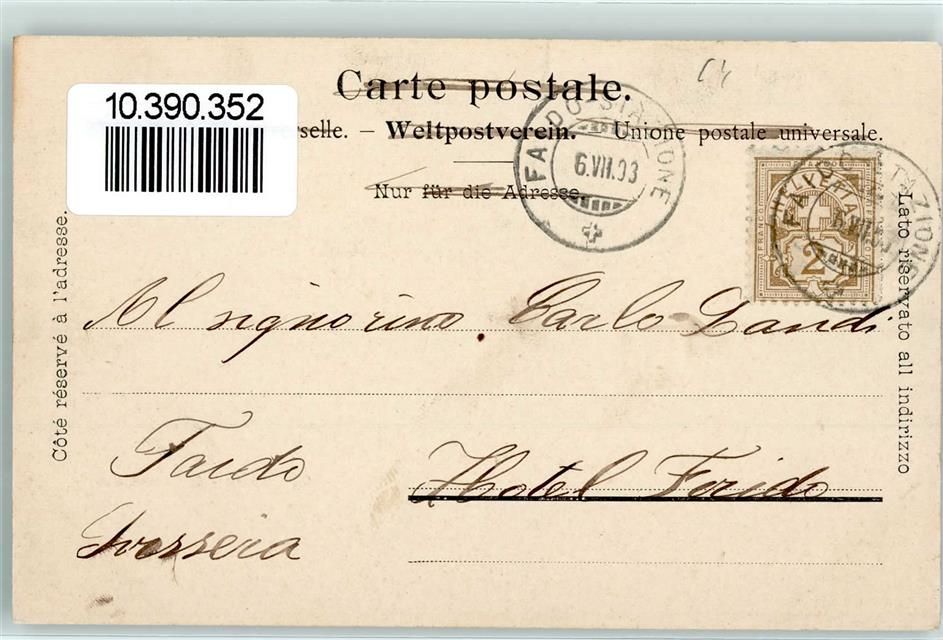 Carte postale.
10.390.352
rselle. – Weltpostverein. – Unione postale universale.
Nur für die Adresse.
FAIDO STAZIONE
6.VII.03
FRANCO
HELVETIA
2
FAIDO STAZIONE
6.VII.03
Côté réservé à l'adresse.
Lato riservato all indirizzo
Al signorino Carlo Landi
Faido Hotel Faido
Svizzera